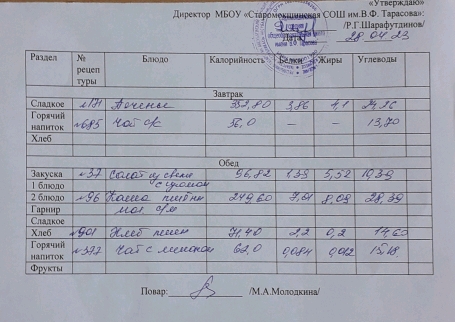 «Утверждаю»
Директор МБОУ «Старомокшинская СОШ им.В.Ф. Тарасова»:
/Р.Г.Шарафутдинов/
Дата 28.04.23
Раздел № рецептуры Блюдо Калорийность Белки Жиры Углеводы
Завтрак
Сладкое №171 Печенье 352,80 3,86 4,1
Горячий напиток №685 Чай с/с 56,0 — — 13,70
Хлеб
Обед
Закуска №37 Салат из свеклы 96,82 1,39 5,52 10,39
1 блюдо с сыром
2 блюдо №96 Каша 249,60 7,61 8,09 28,39
Гарнир
Сладкое
Хлеб №901 Хлеб пшен 71,40 2,2 0,2 14,60
Горячий напиток №377 Чай с лимоном 62,0 0,084 0,012 15,18
Фрукты
Повар: /М.А.Молодкина/